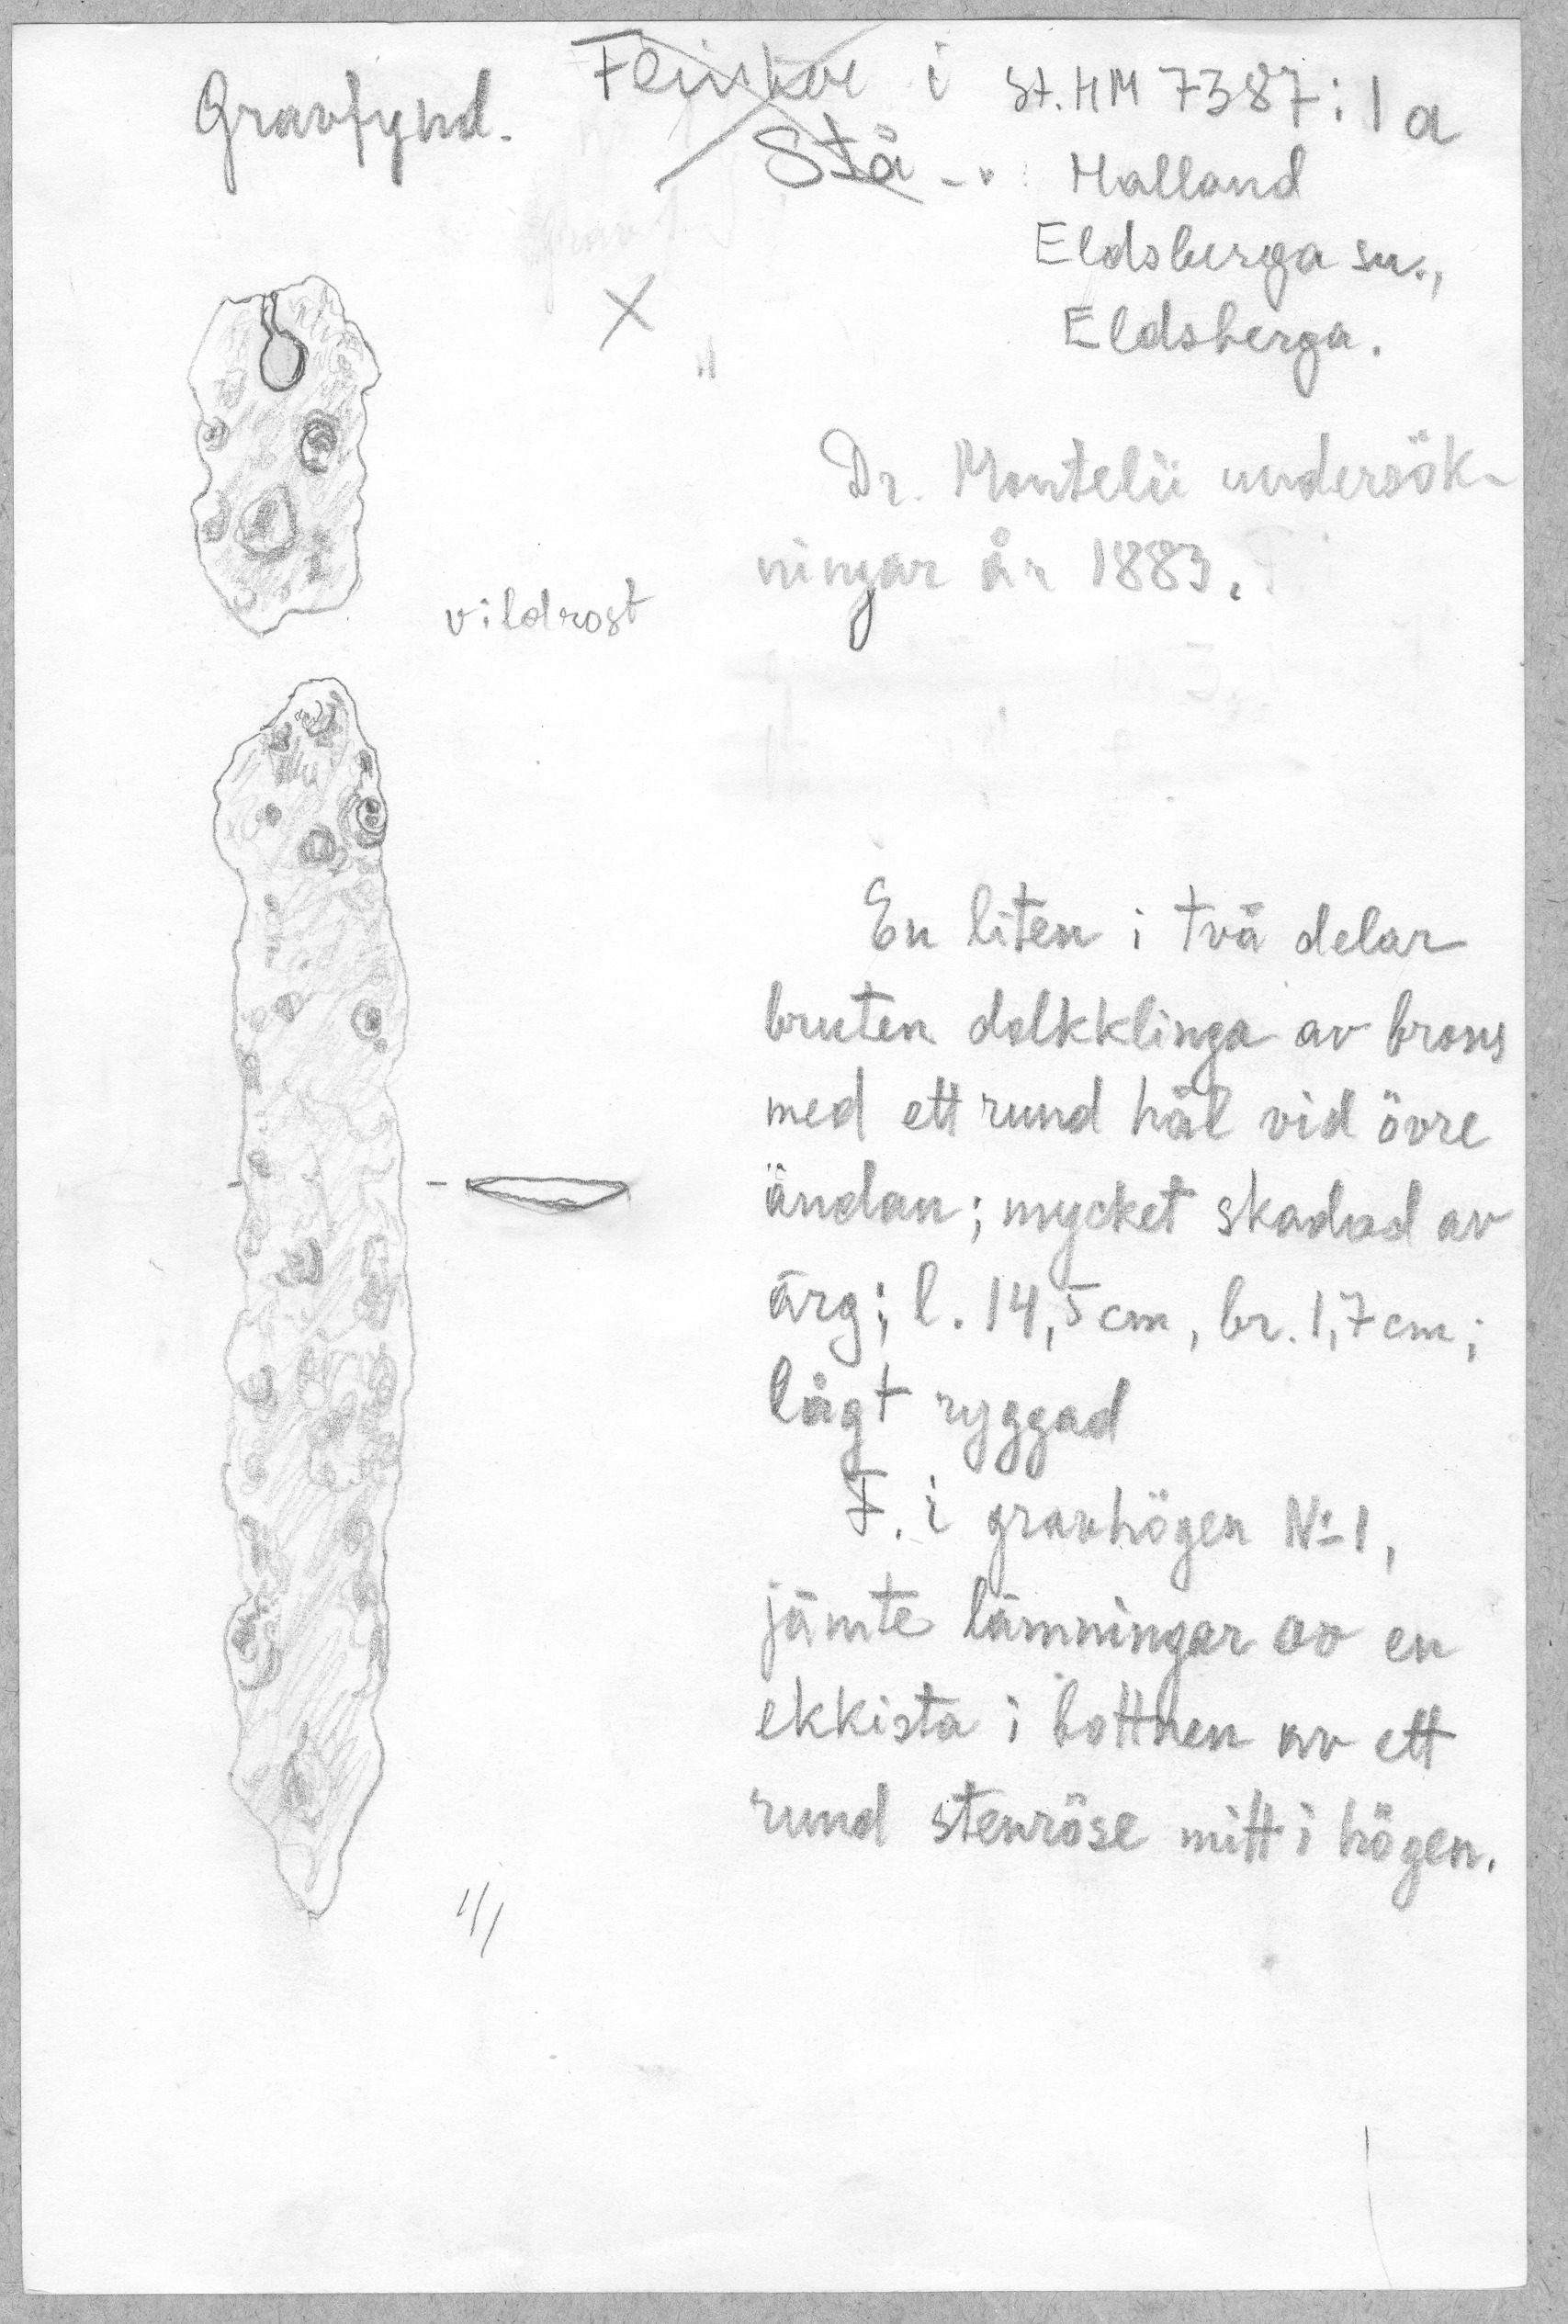 Gravfynd.
i St. HM 7387:1a
Stä
Halland
Eldsberga sn.,
Eldsberga.
Dr. Montelii undersök-
ningar år 1883.
vildrost
En liten i två delar
bruten dolkklinga av brons
med ett rund hål vid övre
ändan; mycket skadad av
ärg; l. 14,5 cm, br. 1,7 cm;
lågt ryggad
F. i gravhögen No 1,
jämte lämningar av en
ekkista i bottnen av ett
rund stenröse mitt i högen.
1/1